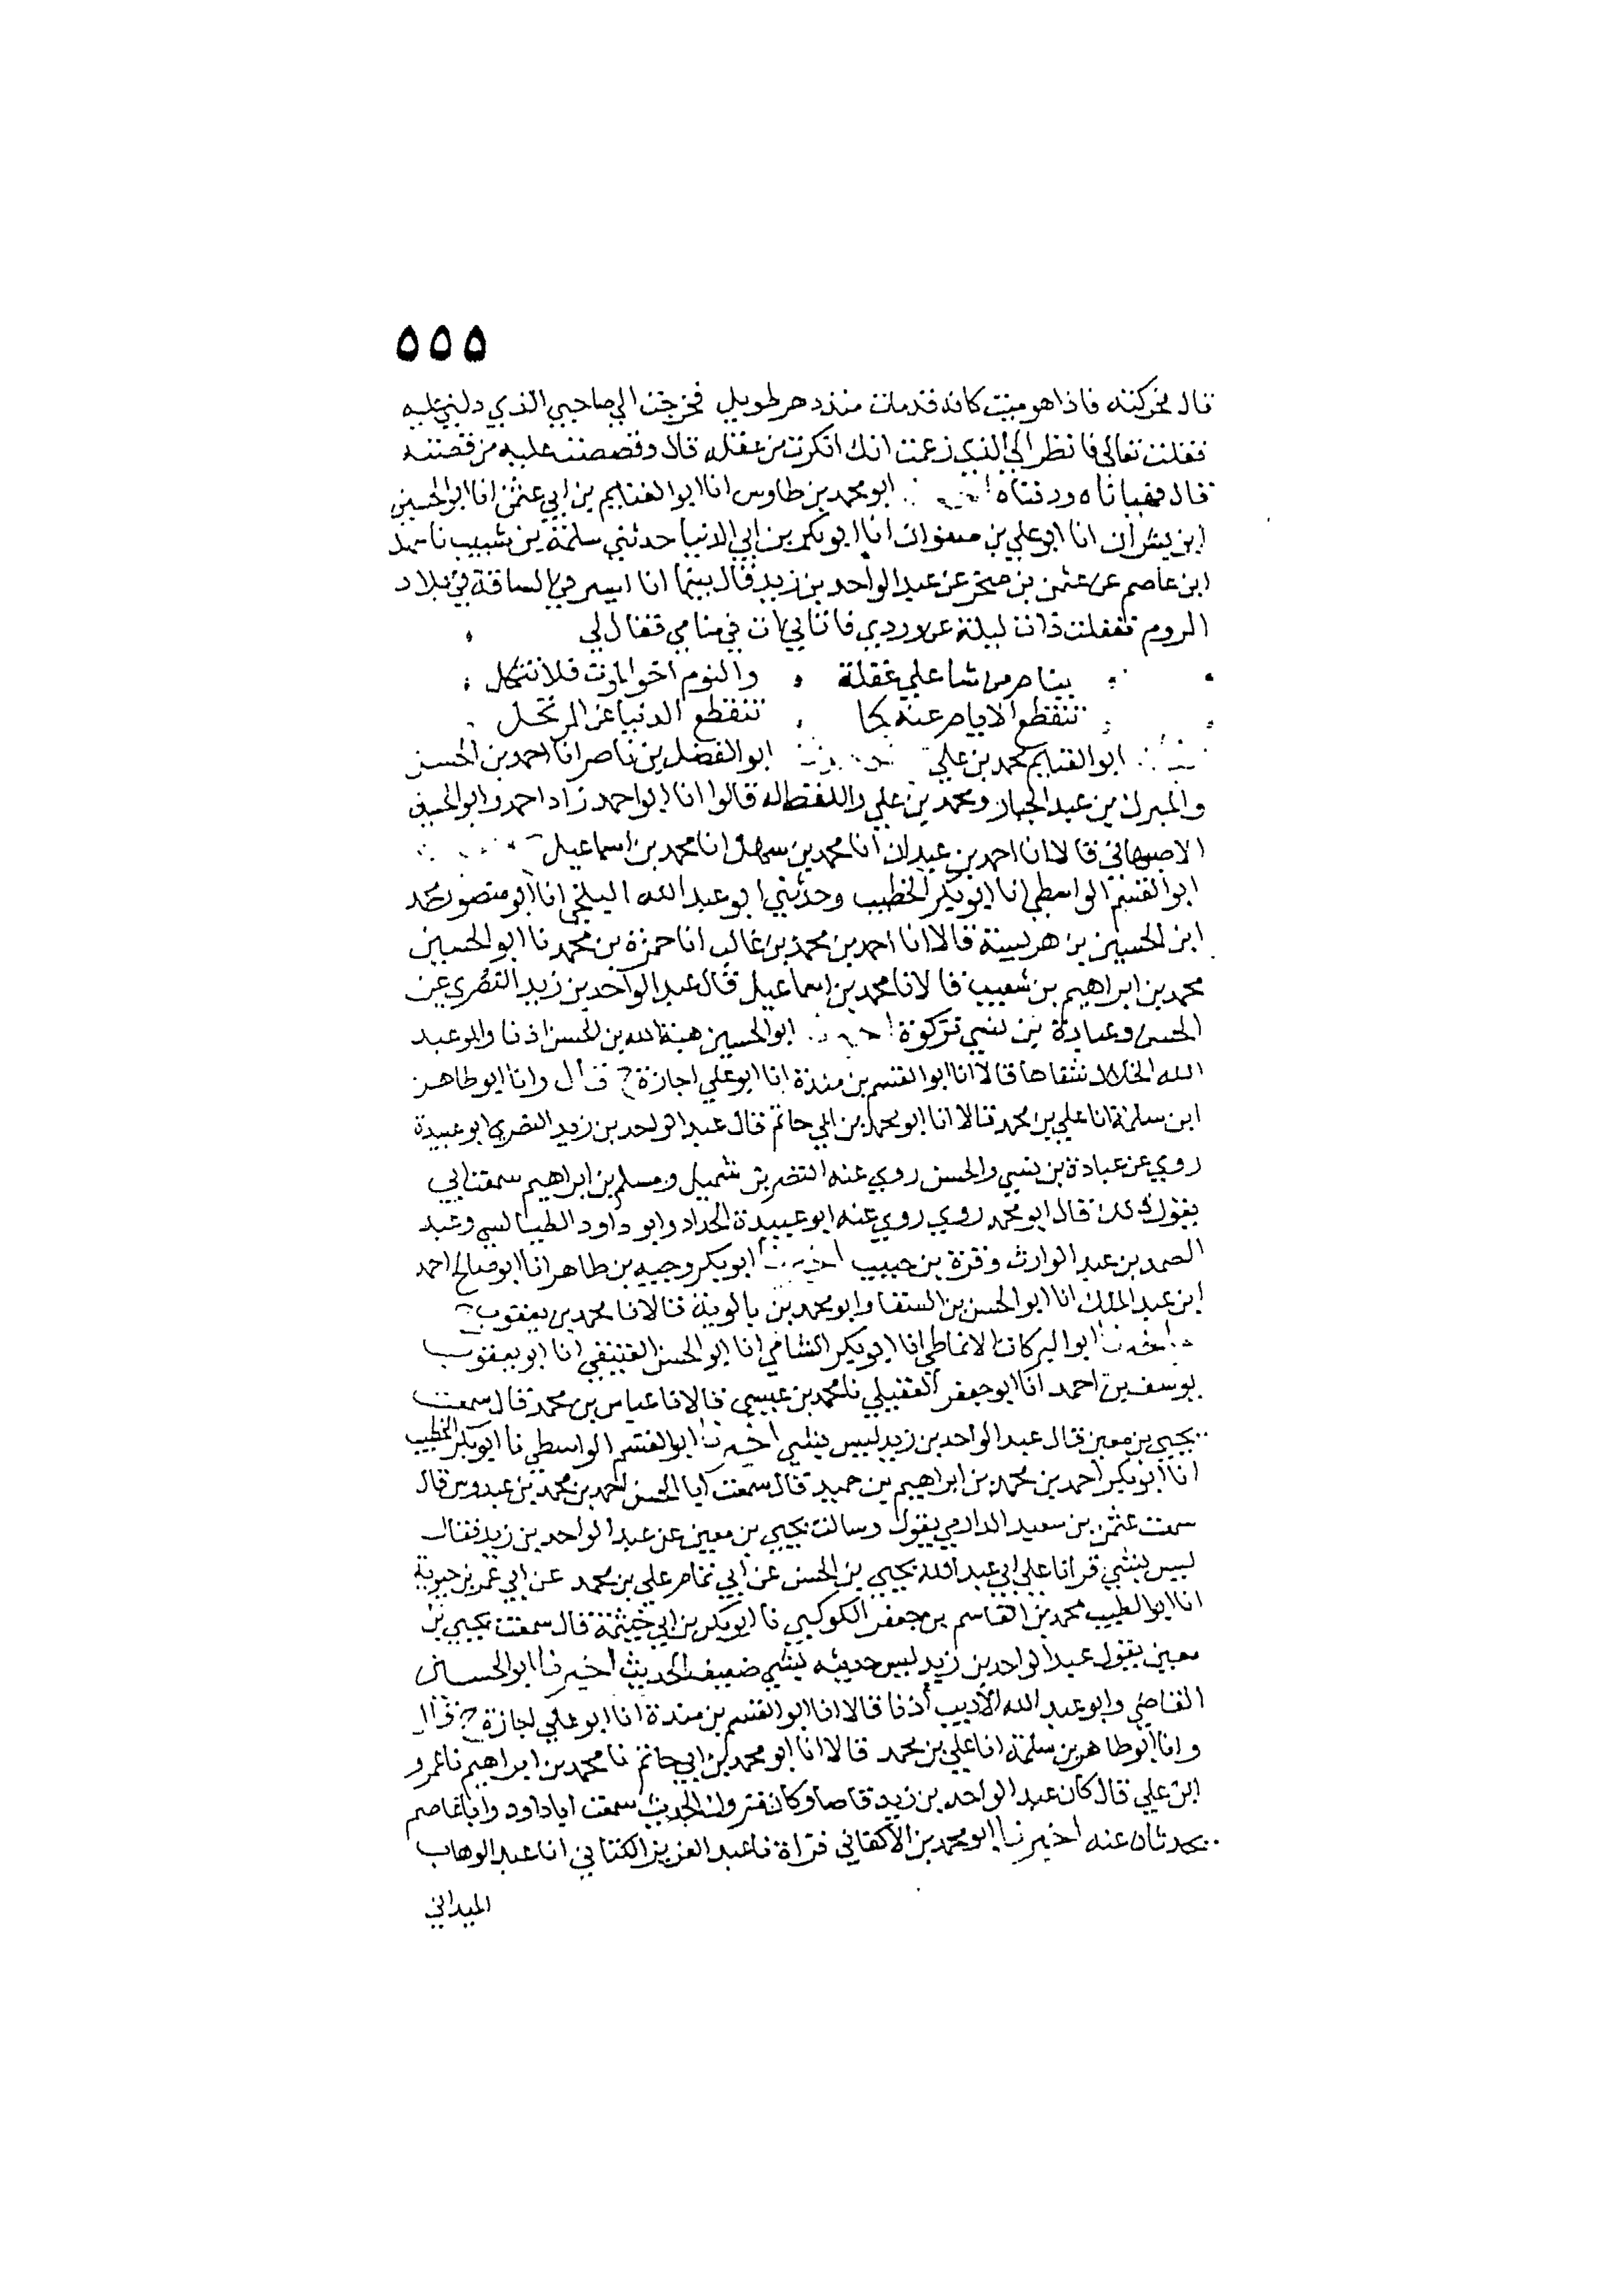 ٥٥٥
قال فحركته فاذا هو ميت كانه قد مات منذ دهر طويل فخرجت الي صاحبي الذي دلني عليه
فقلت تعالي فانظر الي الذي زعمت انك انكرت من عقله قال وقصصت عليه من قصته
قال فهياناه ودفناه ابو محمد بن طاوس انا ابو الغنايم بن ابي عثمن انا ابو الحسين
ابن بشران انا ابو علي بن صفوان انا ابو بكر بن ابي الدنيا حدثني سلمة بن شبيب نا سهل
ابن عاصم عن عثمن بن صخر عن عبد الواحد بن زيد قال بينما انا اسير في الساقة في بلاد
الروم فغفلت ذات ليلة عن وردي فاتاني ات في منامي فقال لي
ينام من شا علي غفلة والنوم اخو الموت فلا تتكل
تنقطع الايام عنه كما تنقطع الدنيا عن المرتحل
ابو الغنايم محمد بن علي ابو الفضل بن ناصر انا احمد بن الحسن
والمبرك بن عبد الجبار ومحمد بن علي واللفظ له قالوا انا ابو احمد زاد احمد وابو الحسين
الاصبهاني قالا انا احمد بن عبدان انا محمد بن سهل انا محمد بن اسماعيل
ابو القسم الواسطي انا ابو بكر الخطيب وحدثني ابو عبد الله البلخي انا ابو منصور محمد
ابن الحسين بن هريسة قالا انا احمد بن محمد بن غالب انا حمزة بن محمد نا ابو الحسين
محمد بن ابراهيم بن شعيب قالا نا محمد بن اسماعيل قال عبد الواحد بن زيد البصري عن
الحسن وعبادة بن نسي تركوه ابو الحسين هبة الله بن الحسن اذنا وابو عبد
الله الخلال شفاها قالا انا ابو القسم بن مندة انا ابو علي اجازة ح قال وانا ابو طاهر
ابن سلمة انا علي بن محمد قالا انا ابو محمد بن ابي حاتم قال عبد الواحد بن زيد البصري ابو عبيدة
روي عن عبادة بن نسي والحسن روي عنه النضر بن شميل ومسلم بن ابراهيم سمعت ابي
يقول ذلك قال ابو محمد روي روي عنه ابو عبيدة الحداد وابو داود الطيالسي وعبد
الصمد بن عبد الوارث وقرة بن حبيب اخبرنا ابو بكر وجيه بن طاهر انا ابو صالح احمد
ابن عبد الملك انا ابو الحسن بن السقا وابو محمد بن بالوية قالا نا محمد بن يعقوب ح
واخبرنا ابو البركات الانماطي انا ابو بكر الشامي انا ابو الحسن العتيقي انا ابو يعقوب
يوسف بن احمد انا ابو جعفر العقيلي نا محمد بن عيسي قالا نا عباس بن محمد قال سمعت
يحيي بن معين قال عبد الواحد بن زيد ليس بشي اخبرنا ابو القسم الواسطي نا ابو بكر الخطيب
انا ابو بكر احمد بن محمد بن ابراهيم بن حميد قال سمعت ابا الحسن احمد بن محمد بن عبدوس قال
سمعت عثمن بن سعيد الدارمي يقول وسالت يحيي بن معين عن عبد الواحد بن زيد فقال
ليس بشي قرانا علي ابي عبد الله يحيي بن الحسن عن ابي تمام علي بن محمد عن ابي عمر بن حيوية
انا ابو الطيب محمد بن القاسم بن جعفر الكوكبي نا ابو بكر بن ابي خيثمة قال سمعت يحيي بن
معين يقول عبد الواحد بن زيد ليس حديثه بشي ضعيف الحديث اخبرنا ابو الحسين
القاضي وابو عبد الله الاديب اذنا قالا انا ابو القسم بن مندة انا ابو علي اجازة ح قال
وانا ابو طاهر بن سلمة انا علي بن محمد قالا انا ابو محمد بن ابي حاتم نا محمد بن ابراهيم نا عمرو
ابن علي قال كان عبد الواحد بن زيد قاصا وكان متروك الحديث سمعت ابا داود وابا عاصم
يحدثان عنه اخبرنا ابو محمد بن الاكفاني قراة نا عبد العزيز الكتاني انا عبد الوهاب
الميداني